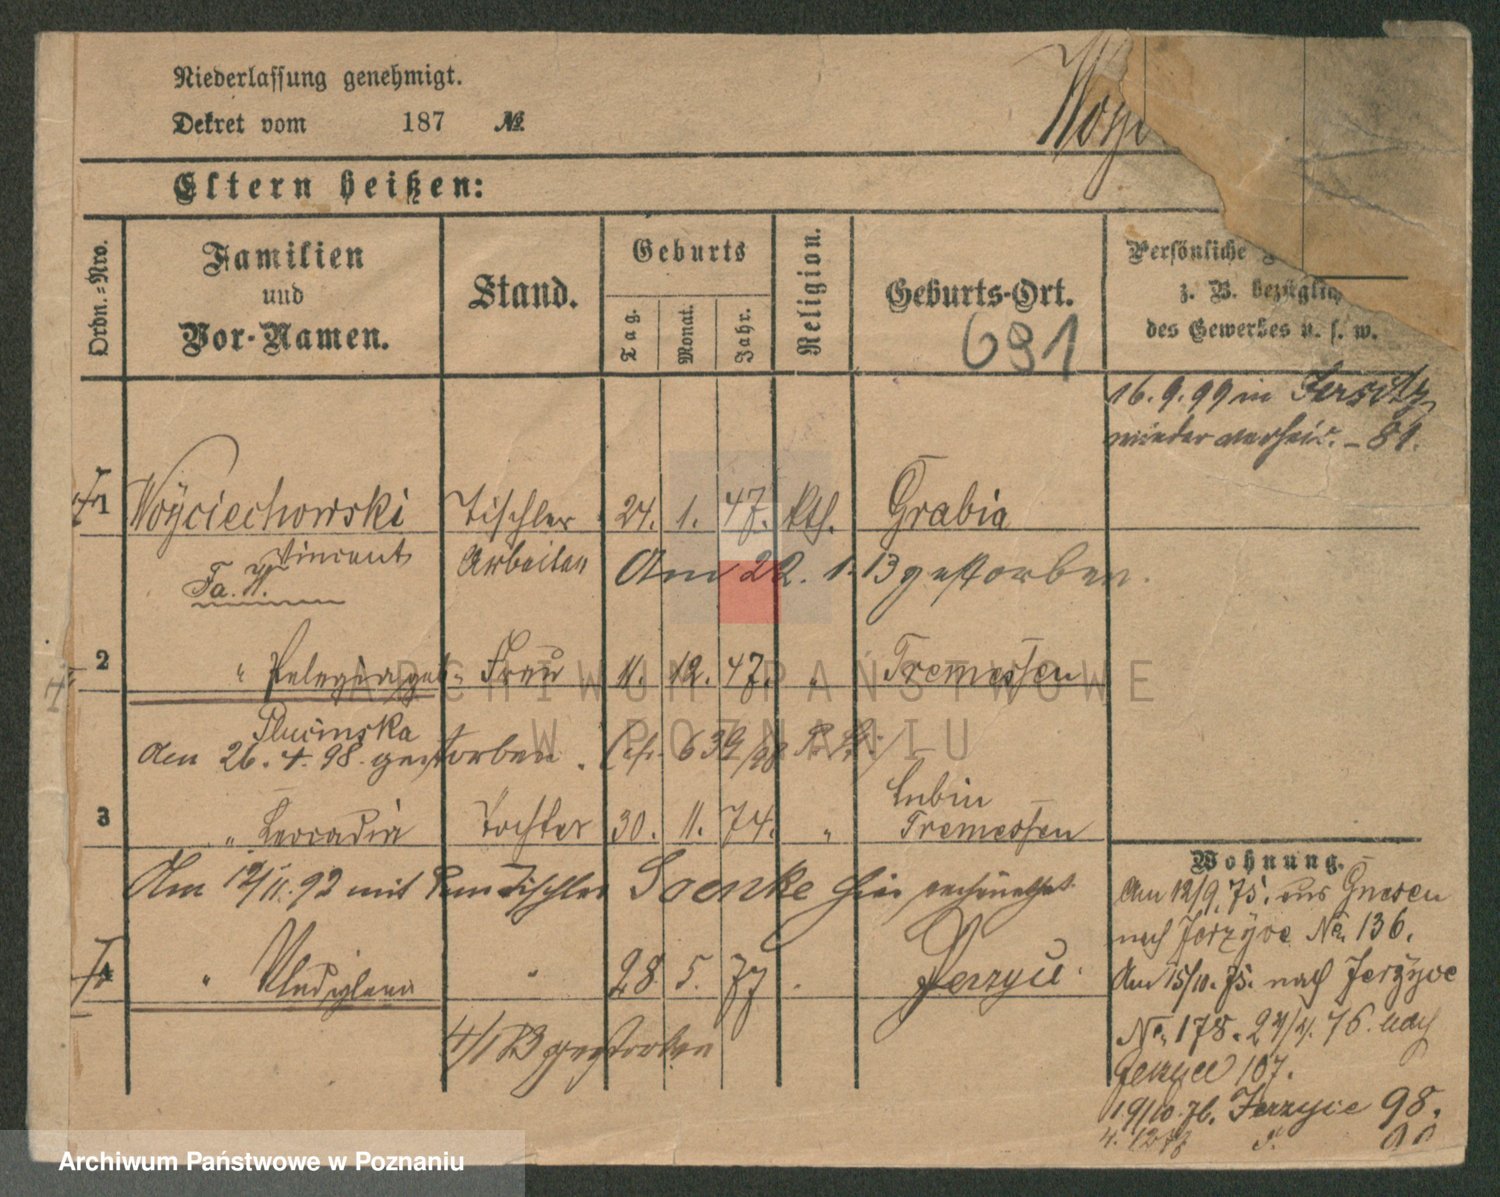 Niederlassung genehmigt.
Dekret vom 187 №
Woyc
Eltern heißen:
Ordn.-Nro.
Familien
und
Vor-Namen.
Stand.
Geburts
Tag.
Monat.
Jahr.
Religion.
Geburts-Ort.
691
Persönliche
z. B. bezüglich
des Gewerbes u. s. w.
16.9.99 in Jersitz
wieder verheir. - 81.
1 Woyciechowski Tischler 24. 1. 47. kth. Grabia
Vincent Arbeiter Am 22. 1. 13 gestorben.
Fa. W.
2 " Pelagia geb. Frau 11. 12. 47. " Tremessen
Slucinska
am 26. 4. 98. gestorben.
Lubin
3 " Leocadia Tochter 30. 11. 74. " Tremessen
Am 12/11. 92 mit dem Tischler Soenke hier
4 " Wladislawa " 28 5. 77 " Jerzyce
4/1 13 gestorben
Wohnung.
Am 12/9. 75. aus Gnesen
nach Jerzyce No. 136.
Am 15/10. 75. nach Jerzyce
No. 178. 76. nach
Jerzyce 107.
19/10. 76. Jerzyce 98.
ARCHIWUM PAŃSTWOWE
W POZNANIU
Archiwum Państwowe w Poznaniu